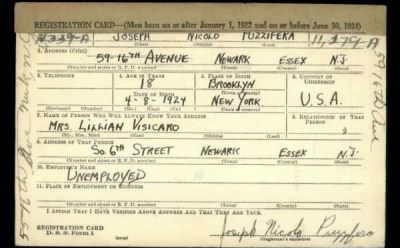 REGISTRATION CARD—(Men born on or after January 1, 1922 and on or before June 30, 1924)
JOSEPH NICOLO PUZZIFERA 11,379-A
2. ADDRESS (Print)
59-16TH AVENUE NEWARK ESSEX N.J.
3. TELEPHONE 4. AGE IN YEARS 5. PLACE OF BIRTH 6. COUNTRY OF CITIZENSHIP
18 BROOKLYN
DATE OF BIRTH
4-8-1924 NEW YORK U.S.A.
7. NAME OF PERSON WHO WILL ALWAYS KNOW YOUR ADDRESS 8. RELATIONSHIP OF THAT PERSON
MRS. LILLIAN VISICARO
9. ADDRESS OF THAT PERSON
SO. 6TH STREET NEWARK ESSEX N.J.
10. EMPLOYER'S NAME
UNEMPLOYED
11. PLACE OF EMPLOYMENT OR BUSINESS
I AFFIRM THAT I HAVE VERIFIED ABOVE ANSWERS AND THAT THEY ARE TRUE.
REGISTRATION CARD
D. S. S. Form 1 Joseph Nicolo
(Registrant's signature)